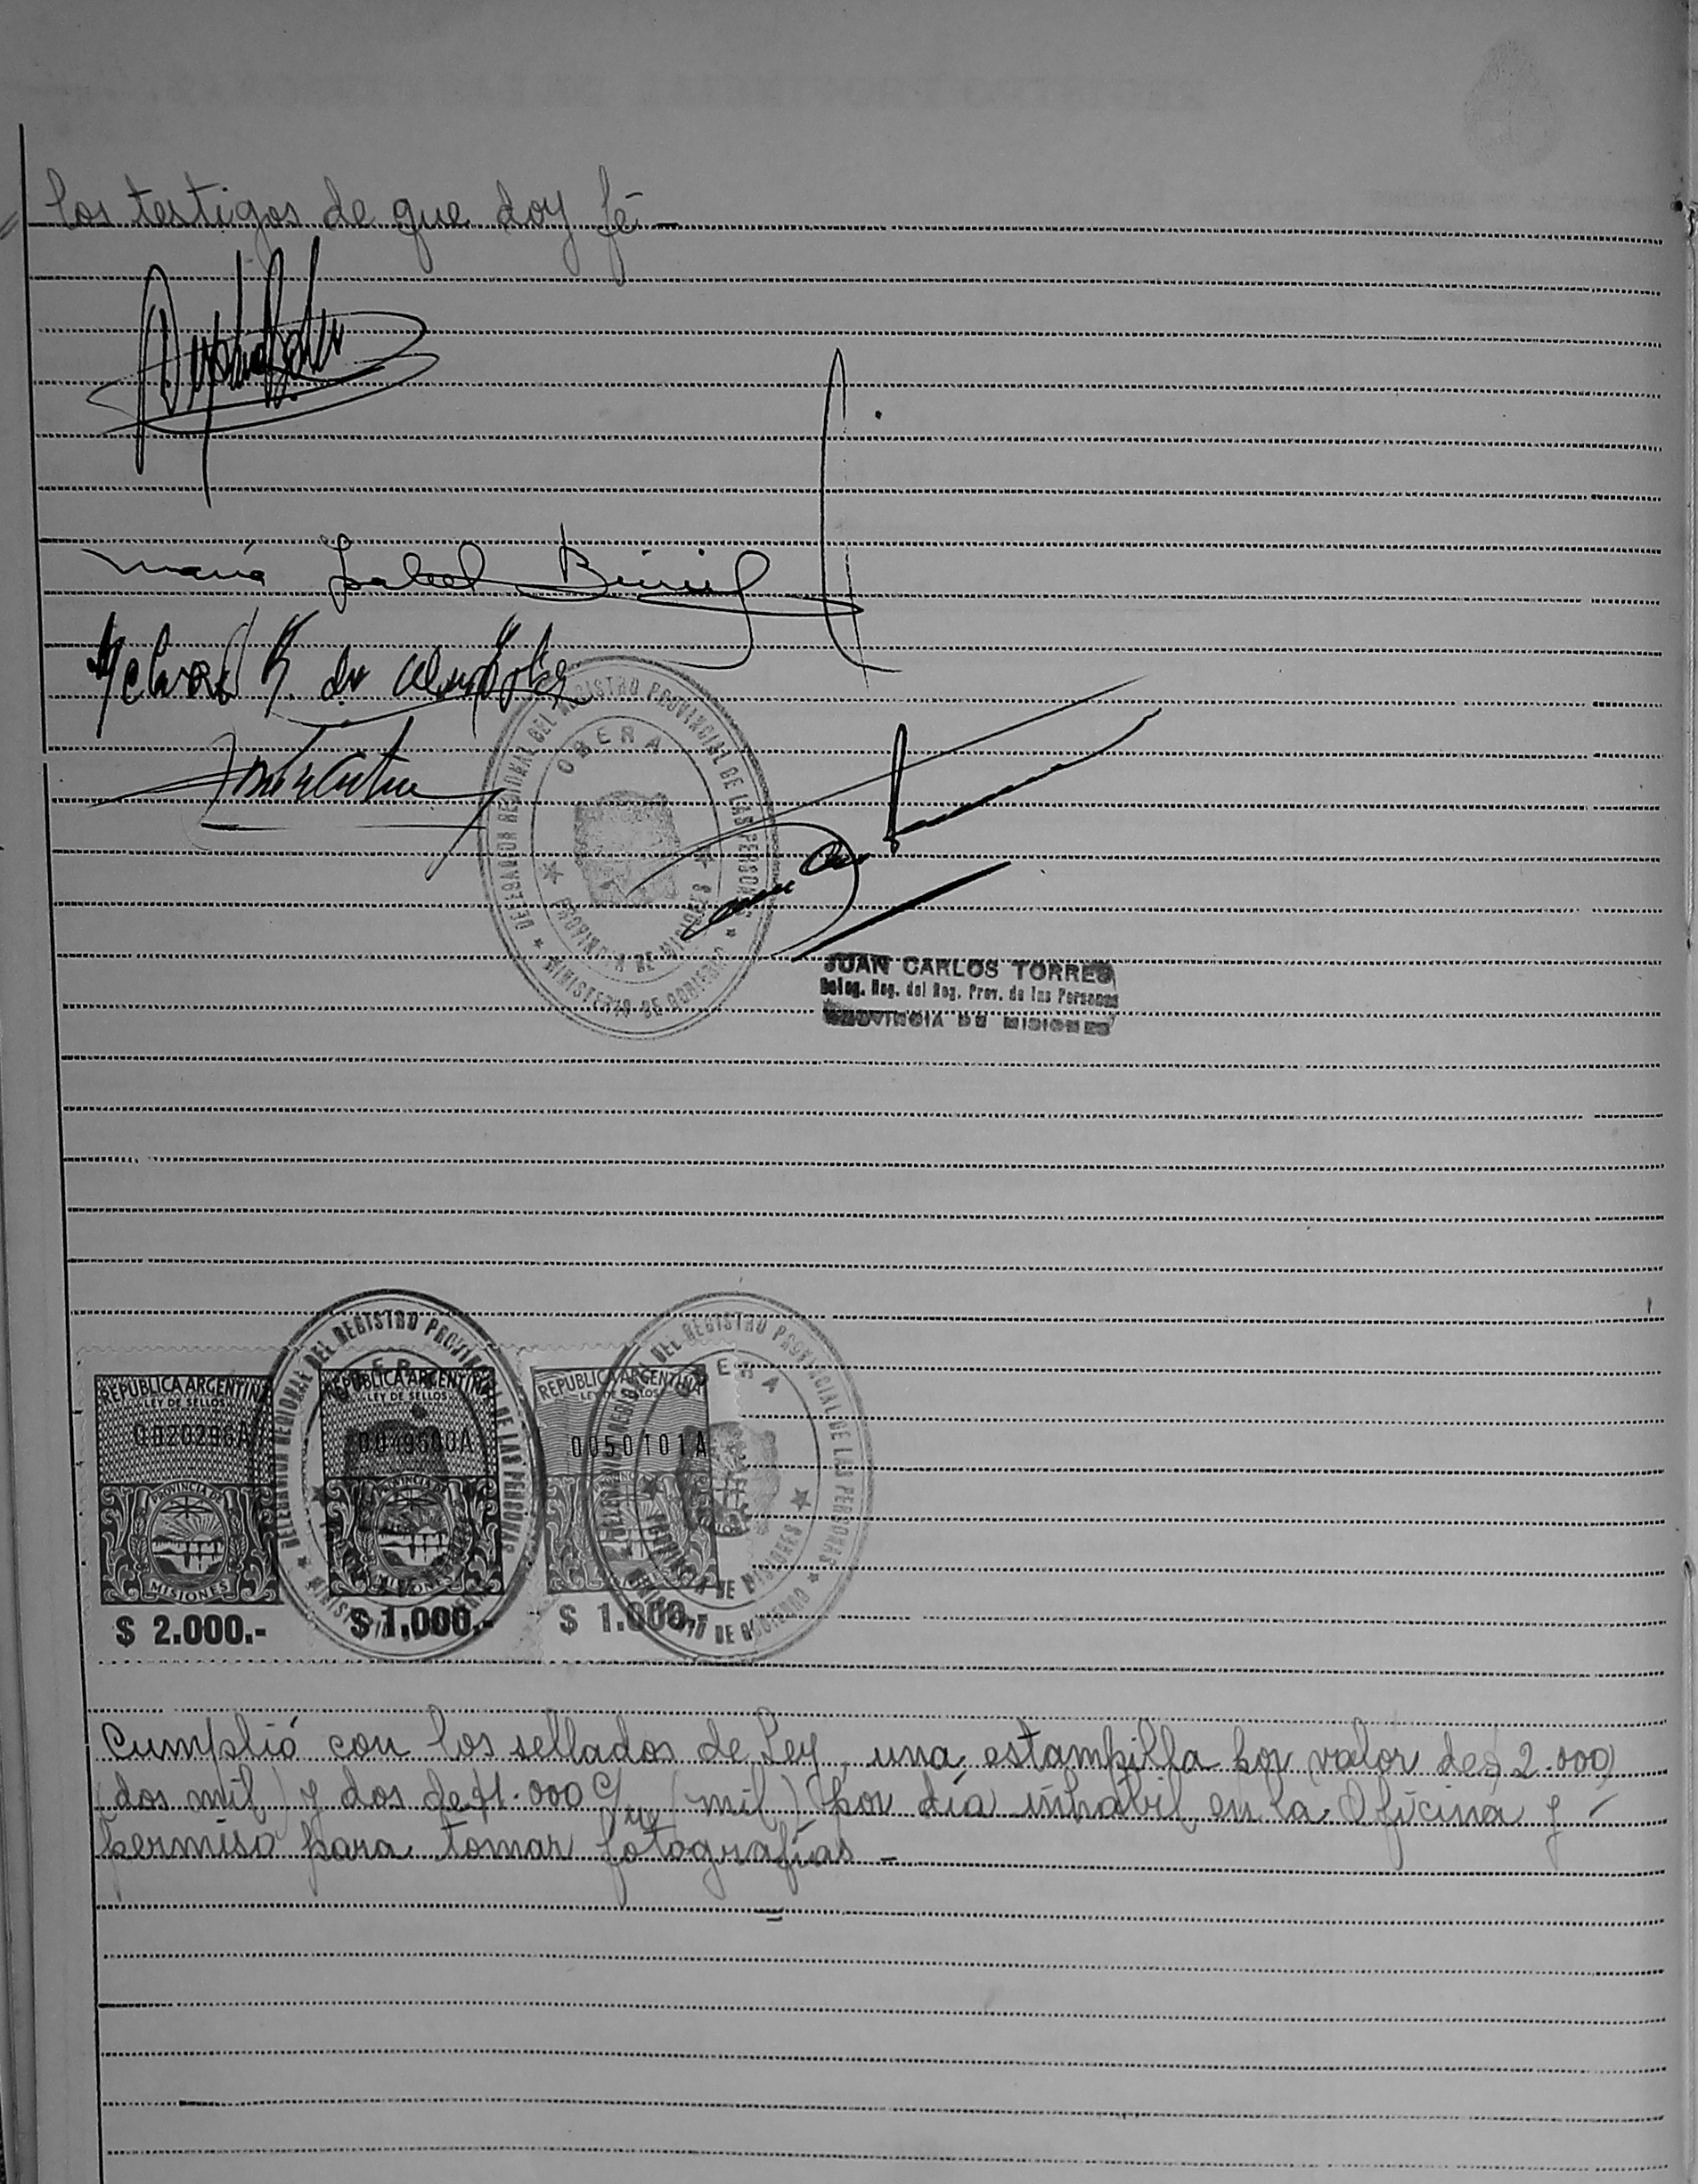 los testigos de que doy fé -
María Isabel
DELEGACION REGIONAL DEL REGISTRO PROVINCIAL DE LAS PERSONAS
OBERA
PROVINCIA DE MISIONES
MINISTERIO DE GOBIERNO
JUAN CARLOS TORRES
Deleg. Reg. del Reg. Prov. de las Personas
PROVINCIA DE MISIONES
DELEGACION REGIONAL DEL REGISTRO PROVINCIAL DE LAS PERSONAS
DELEGACION REGIONAL DEL REGISTRO PROVINCIAL DE LAS PERSONAS
OBERA
PROVINCIA DE MISIONES
MINISTERIO DE GOBIERNO
REPUBLICA ARGENTINA
LEY DE SELLOS
PROVINCIA DE
MISIONES
$ 2.000.-
REPUBLICA ARGENTINA
LEY DE SELLOS
PROVINCIA DE
MISIONES
$ 1.000.-
REPUBLICA ARGENTINA
LEY DE SELLOS
0050101A
$ 1.000.-
Cumplió con los sellados de Ley, una estampilla por valor de $ 2.000
(dos mil) y dos de $1.000 c/u (mil) por día inhábil en la Oficina y -
permiso para tomar fotografías -